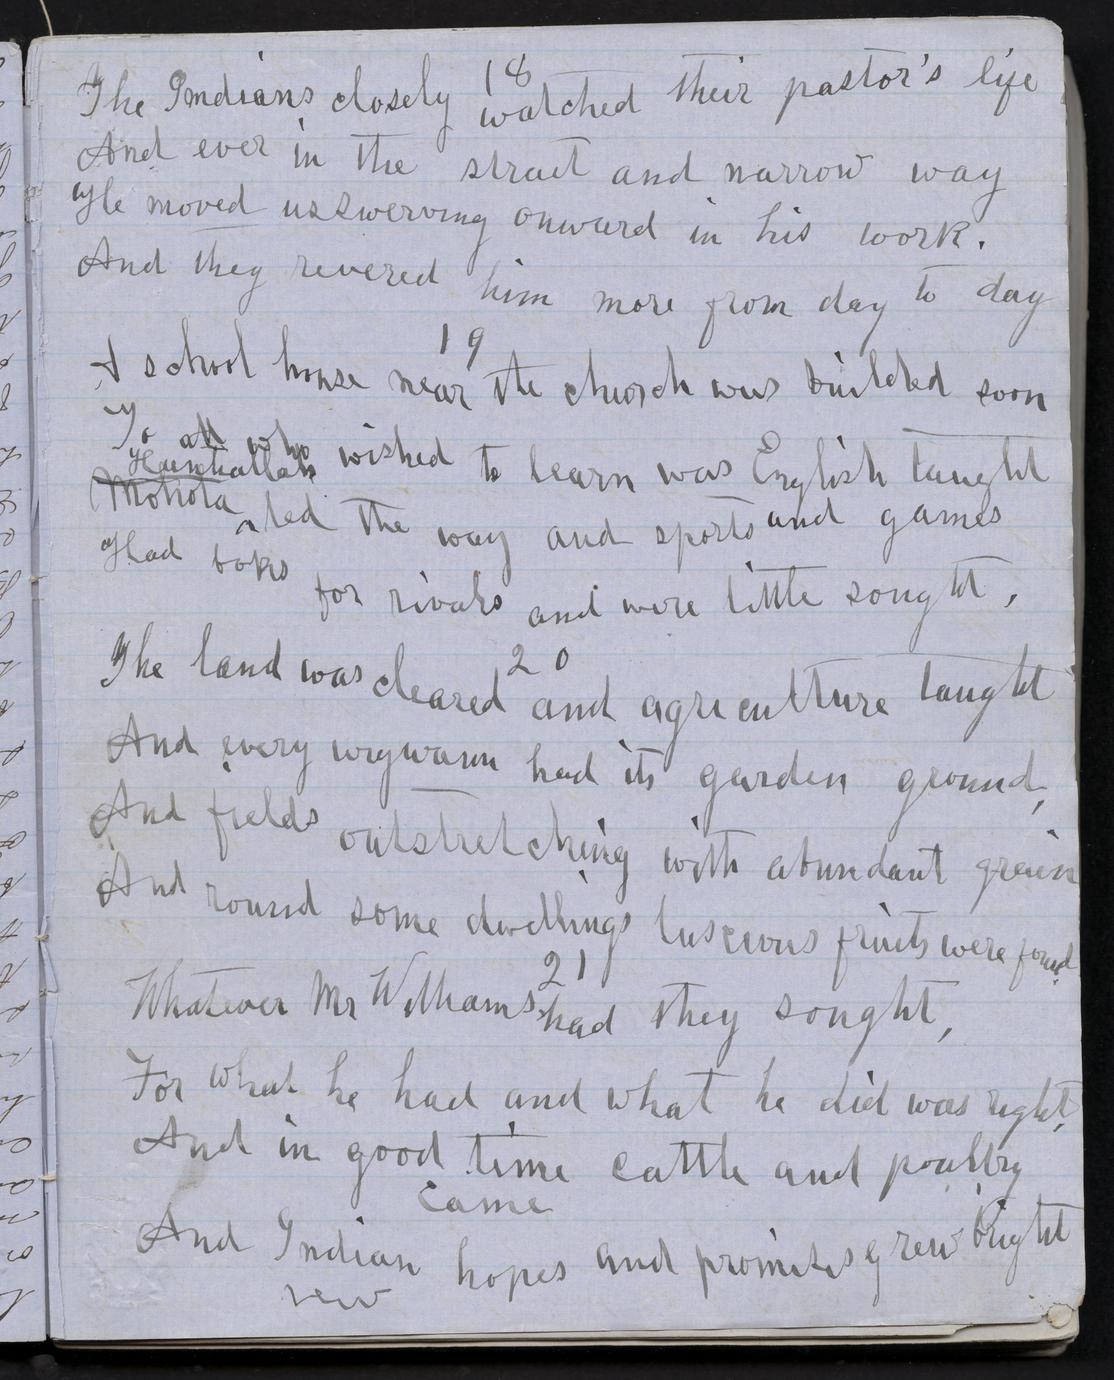 18
The Indians closely watched their pastor's life
And ever in the strait and narrow way
He moved unswerving onward in his work.
And they revered him more from day to day
19
A school house near the church was builded soon
To all who wished to learn was English taught
Mohola led the way and sports and games
Had books for rivals and were little sought,
20
The land was cleared and agriculture taught
And every wigwam had its garden ground,
And fields outstretching with abundant grain
And round some dwellings luscious fruits were found.
21
Whatever Mr Williams had they sought,
For what he had and what he did was right,
And in good time cattle and poultry
came
And Indian hopes and promises grew bright
new